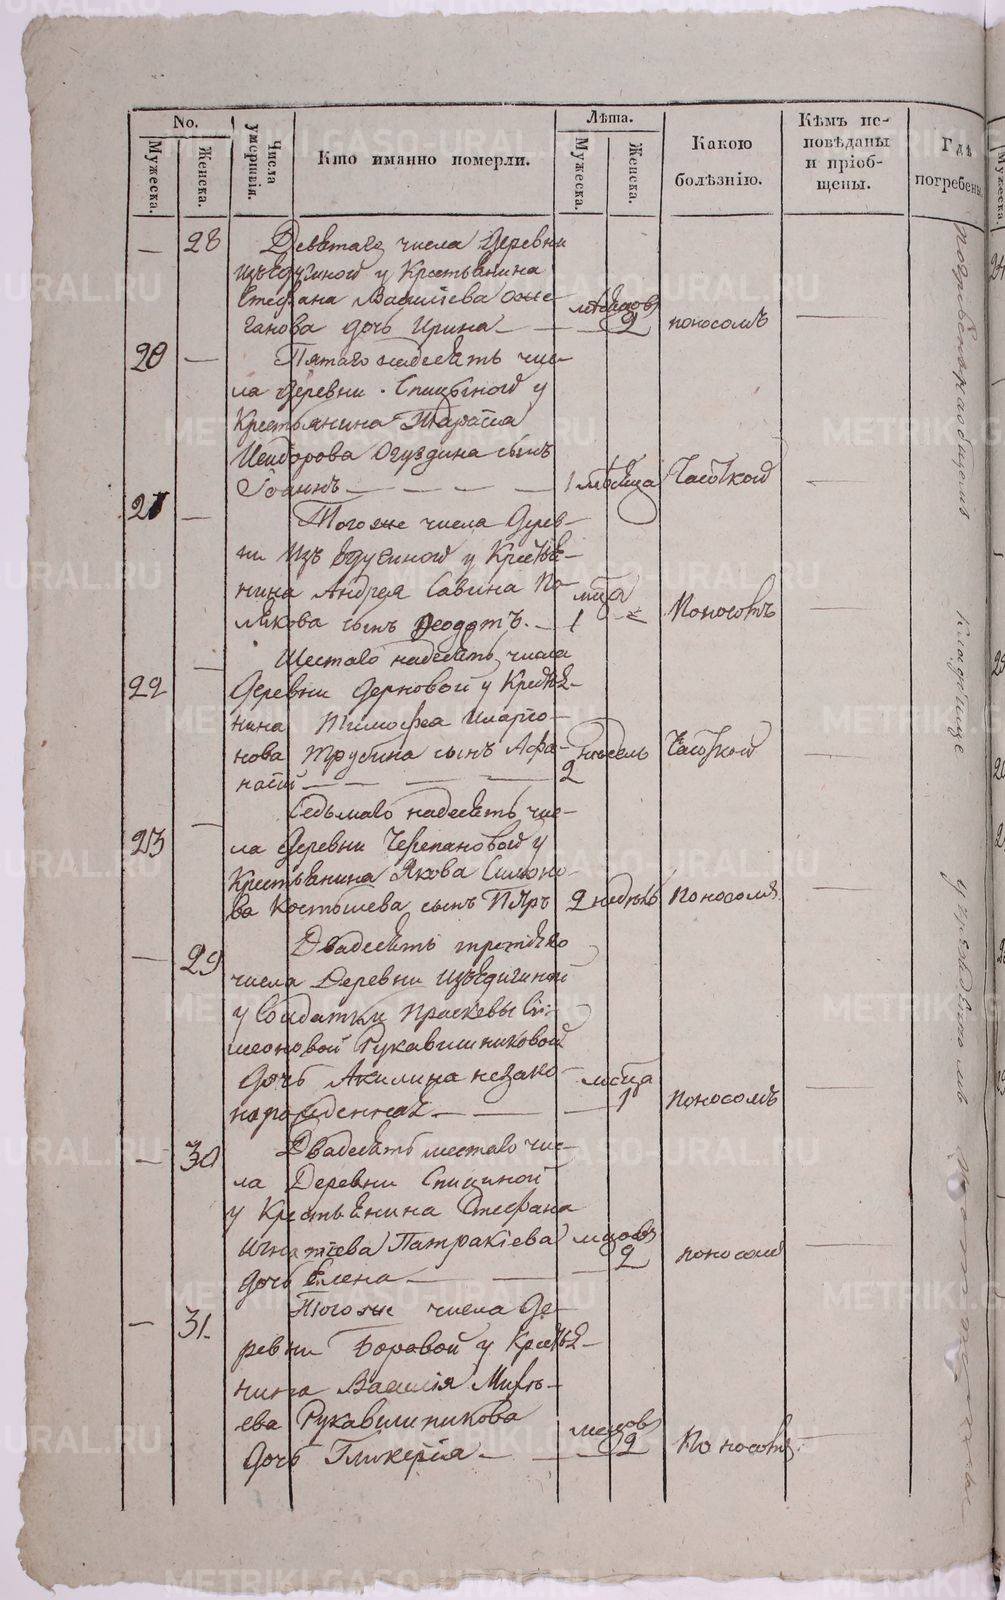 No.
Мужеска.
Женска.
Числа умершвія.
Кто иманно померли.
Лѣта.
Мужеска.
Женска.
Какою болѣзнію.
Кѣмъ исповѣданы и пріобщены.
Гдѣ погребены.
— 28 Девятаго числа Деревни
у Крестьянина
Стефана Василіева Оже- месяцовъ
ганова дочь Ирина — 2 поносомъ
20 — Пятаго надесять чис-
ла Деревни Спицыной у
Крестьянина Тарасія
Исидорова Огуздина сынъ
Іоаннъ — — — — 1 месяца Чахоткой
21 — Того же числа Дерев-
ни Изъедугиной у Крестья-
нина Андрея Савина По- мца
лякова сынъ Феодотъ. — 1 Поносомъ
— Шестаго надесять числа
22 Деревни Дерновой у Крестья-
нина Тимофея Иларіо-
нова Трубина сынъ Афа- недель Чахоткой
насій — — — 2
— Седьмаго надесять чис-
23 ла Деревни Черепановой у
Крестьянина Якова Симоно-
ва Костылева сынъ Петръ 2 недель поносомъ
— 29 Двадесять третіяго
числа Деревни Изъедигиной
у Солдатки Праскевы Си-
меоновой Рукавишниковой
дочь Акилина незако- месца
норожденная — — 1 поносомъ
— 30 Двадесять шестаго чис-
ла Деревни Спициной
у Крестьянина Стефана
Игнатіева Патракіева мцовъ
дочь Елена — — 2 поносомъ
— 31. Того же числа Де-
ревни Боровой у Крестья-
нина Василія Михѣ-
ева Рукавишникова месцов
дочь Гликерія — 2 Поносомъ
METRIKI.GASO-URAL.RU